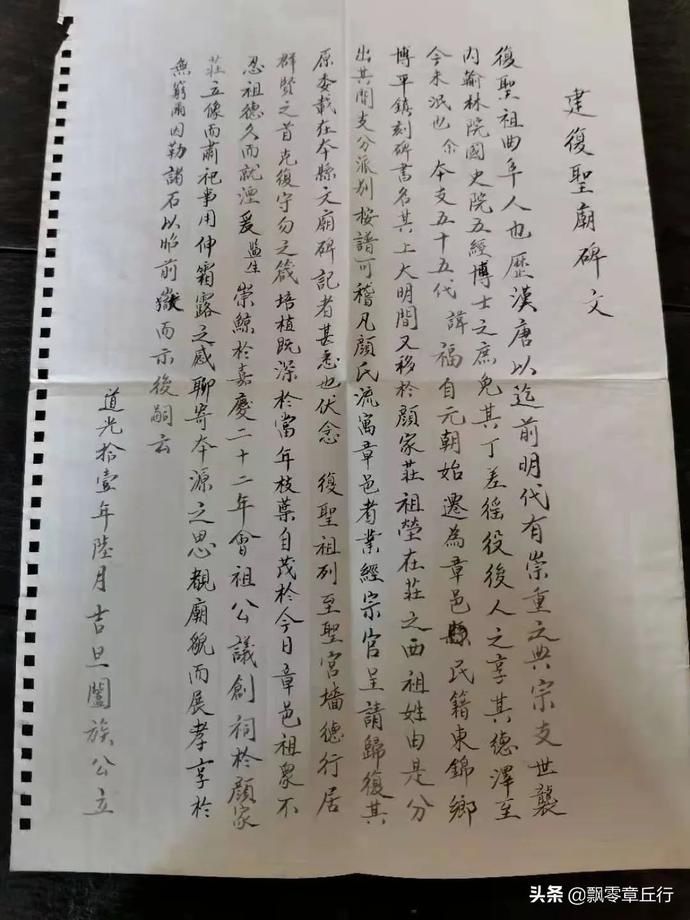 建復聖廟碑文
復聖祖曲阜人也歷漢唐以迄前明代有崇重之典宗支世襲
内翰林院國史院五經博士之庶免其丁差徭役後人之享其德澤至
今未泯也余本支五十五代諱福自元朝始遷為章邑縣民籍東錦鄉
博平鎮刻碑書名其上大明間又移於顏家莊祖塋在莊之西祖姓由是分
出其間支分派别按譜可稽凡顏氏流寓章邑者業經宗官呈請歸復其
原委載在本縣文廟碑記者甚悉也伏念 復聖祖列至聖宮墻德行居
群賢之首克復守勿之箴培植既深於當年枝葉自茂於今日章邑祖眾不
忍祖德久而就湮爰監生崇鯨於嘉慶二十二年會祖公議創祠於顏家
莊立像而肅祀事用伸霜露之感聊寄本源之思覩廟貌而展孝享於
無窮爾因勒諸石以昭前 而示後嗣云
道光拾壹年陸月吉旦闔族公立
头条 @飘零章丘行